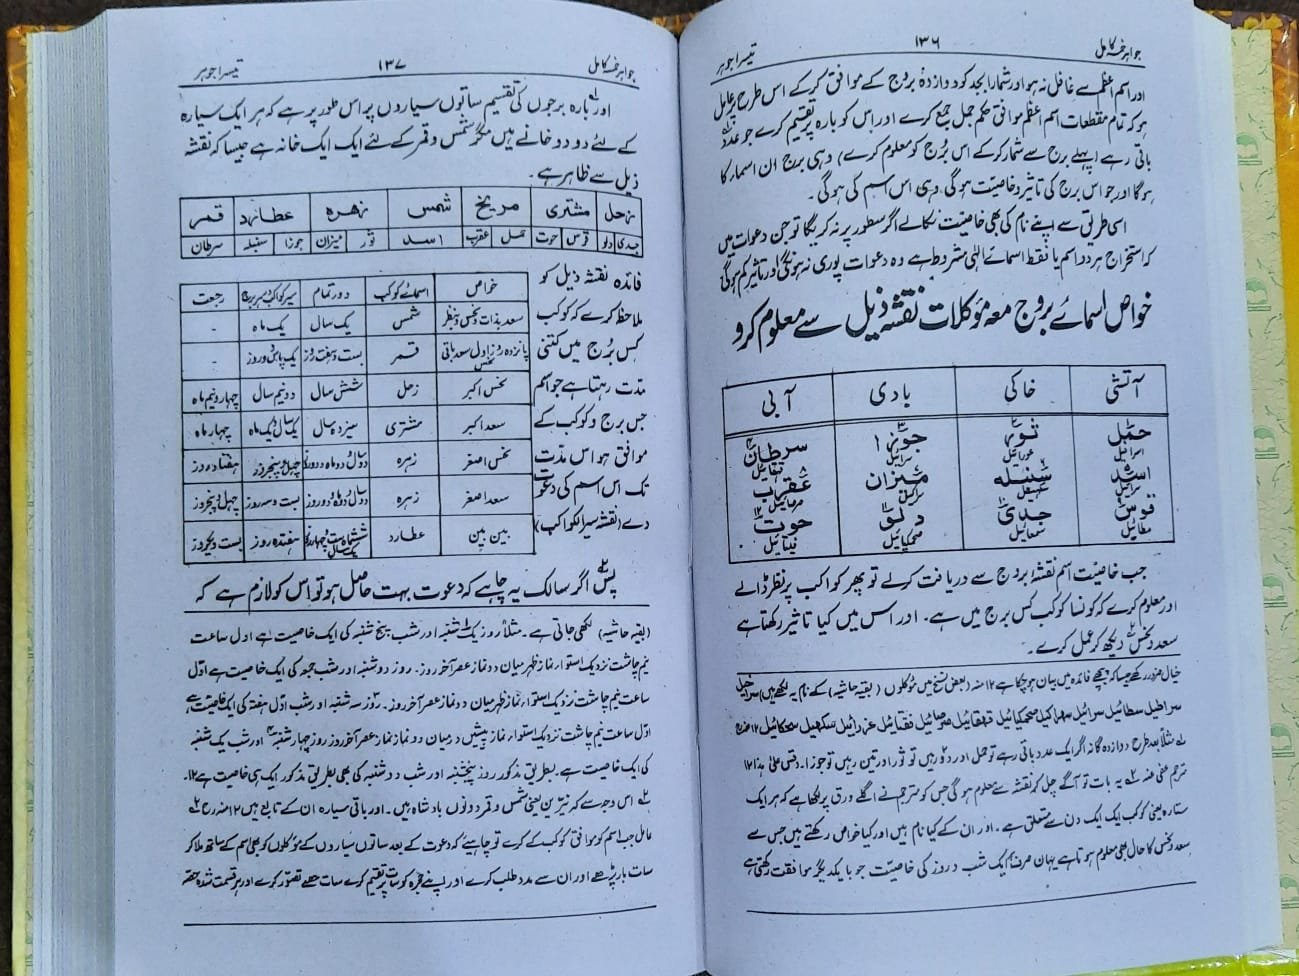 جواہر خمسہ کامل ۱۳۶ تیسرا جوہر
اور اسم اعظم سے غافل نہ ہو اور شمار ابجد کو دوازدہ بروج کے موافق کرکے اس طرح پر عامل
ہو کہ تمام مقطعات اسم اعظم موافق حکم جمل جمع کرے اور اس کو بارہ پر تقسیم کرے جو عدد
باقی رہے (پہلے برج سے شمار کرکے اس برج کو معلوم کرے) وہی برج ان اسماء کا
ہوگا اور جو اس برج کی تاثیر و خاصیت ہوگی وہی اس اسم کی ہوگی۔
اسی طریق سے اپنے نام کی بھی خاصیت نکالے اگر سطور پر نہ کریگا تو جن دعوات میں
کہ استخراج ہر دو اسم یا فقط اسمائے الٰہی مشروط ہے وہ دعوات پوری نہ ہونگی اور تاثیر کم ہوگی
خواص اسمائے بروج معہ مؤکلات نقشہ ذیل سے معلوم کرو
آتشی خاکی بادی آبی
حمل ثور جوزا سرطان
اسرائیل عزرائیل سرائیل
اسد سنبلہ میزان عقرب
قوس جدی دلو حوت
جب خاصیت اسم نقشۂ بروج سے دریافت کرلے تو پھر کواکب پر نظر ڈالے
اور معلوم کرے کہ کونسا کوکب کس برج میں ہے۔ اور اس میں کیا تاثیر رکھتا ہے
سعد و نحس دیکھ کر عمل کرے۔
خیال ضرور رکھے جیسا کہ پیچھے فائدہ میں بیان ہوچکا ہے ۱۲ منہ (بعض نسخ میں مؤکلوں (بقیہ حاشیہ) کے نام یہ لکھے ہیں)
سراطیل سطائیل سرائیل عزرائیل ۱۲
مثلاً بعد طرح دوازدہ گانہ اگر ایک عدد باقی رہے تو حمل اور دو رہیں تو ثور اور تین رہیں تو جوزا۔ وقس علیٰ ہذا ۱۲
مترجم عفی عنہ یہ بات تو آگے چل کر نقشہ سے معلوم ہوگی جس کو مترجم نے اگلے ورق پر لکھا ہے کہ ہر ایک
ستارہ یعنی کوکب ایک ایک دن سے متعلق ہے۔ اور ان کے کیا نام ہیں اور کیا خواص رکھتے ہیں جس سے
سعد و نحس کا حال بھی معلوم ہوتا ہے یہاں صرف ایک شب و روز کی خاصیت جو بایکدیگر موافقت رکھتی ہے
جواہر خمسہ کامل ۱۳۷ تیسرا جوہر
اور بارہ برجوں کی تقسیم ساتوں سیاروں پر اس طور پر ہے کہ ہر ایک سیارہ
کے لئے دو دو خانے ہیں مگر شمس و قمر کے لئے ایک ایک خانہ ہے جیسا کہ نقشہ
ذیل سے ظاہر ہے۔
زحل مشتری مریخ شمس زہرہ عطارد قمر
جدی دلو قوس حوت حمل عقرب اسد ثور میزان جوزا سنبلہ سرطان
فائدہ نقشہ ذیل کو
ملاحظہ کرے کہ کوکب
کس برج میں کتنی
مدت رہتا ہے جو اسم
جس برج و کوکب کے
موافق ہو اس مدت
تک اس اسم کی دعوت
دے (نقشہ سیر الکواکب)
خواص اسمائے کوکب دور تمام سیر کواکب ہر برج رجعت
سعد بذات و نحس و بنظر شمس یک سال یک ماہ -
پانزدہ روز اول سعد باقی نحس قمر بست و ہفت روز یک پاس دو روز -
نحس اکبر زحل شش سال دو نیم سال چہار و نیم ماہ
سعد اکبر مشتری سیزدہ سال یک سال یک ماہ چہار ماہ
نحس اصغر زہرہ دو سال و دو ماہ و دو روز چہل و پنج روز ہفتاد روز
سعد اصغر زہرہ دو سال و دو ماہ و دو روز بست و سہ روز چہل و پنج روز
بین بین عطارد ہفدہ روز بست و یک روز
پس اگر سالک یہ چاہے کہ دعوت بہت حاصل ہو تو اس کو لازم ہے کہ
(بقیہ حاشیہ) لکھی جاتی ہے۔ مثلاً روز یک شنبہ اور شب پنج شنبہ کی ایک خاصیت ہے اول ساعت
نیم چاشت نزدیک استواء نماز ظہر میان دو نماز عصر آخر روز۔ روز دو شنبہ اور شب جمعہ کی ایک خاصیت ہے اول
ساعت نیم چاشت نزدیک استواء نماز ظہر میان دو نماز عصر آخر روز۔ روز سہ شنبہ اور شب اول ہفتہ کی ایک خاصیت ہے
اول ساعت نیم چاشت نزدیک استواء نماز پیشیں درمیان دو نماز نماز عصر آخر روز روز چہار شنبہ اور شب یک شنبہ
کی ایک خاصیت ہے۔ بطریق مذکور روز پنجشنبہ اور شب دو شنبہ کی بھی بطریق مذکور ایک ہی خاصیت ہے ۱۲۔
اس وجہ سے کہ نیرین یعنی شمس و قمر دونوں بادشاہ ہیں۔ اور باقی سیارہ ان کے تابع ہیں ۱۲ منہ رح
عامل جب اسم کو موافق کوکب کے کرے تو چاہئے کہ دعوت کے بعد ساتوں سیاروں کے مؤکلوں کو بھی اسم کے ساتھ ملا کر
سات بار پڑھے اور ان سے مدد طلب کرے اور اپنے حجرہ کو سات پر تقسیم کرے سات حصے تصور کرے اور ہر قسمت شدہ حصہ